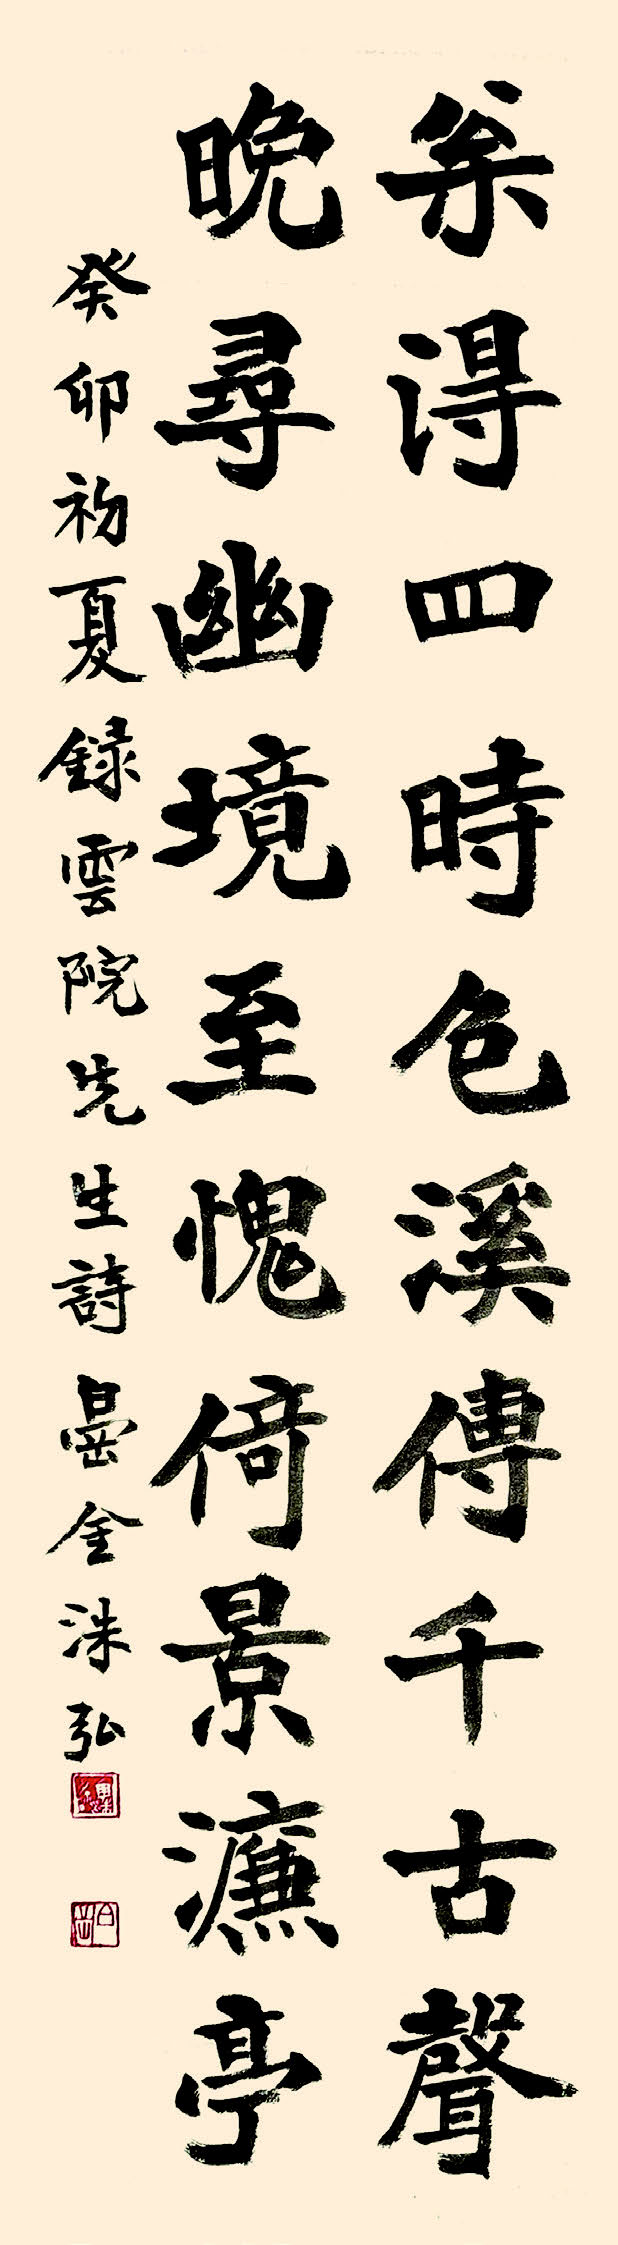 枀得四時色溪傳千古聲
晚尋幽境至愧倚景濂亭
癸卯初夏錄雲院先生詩 金洙弘